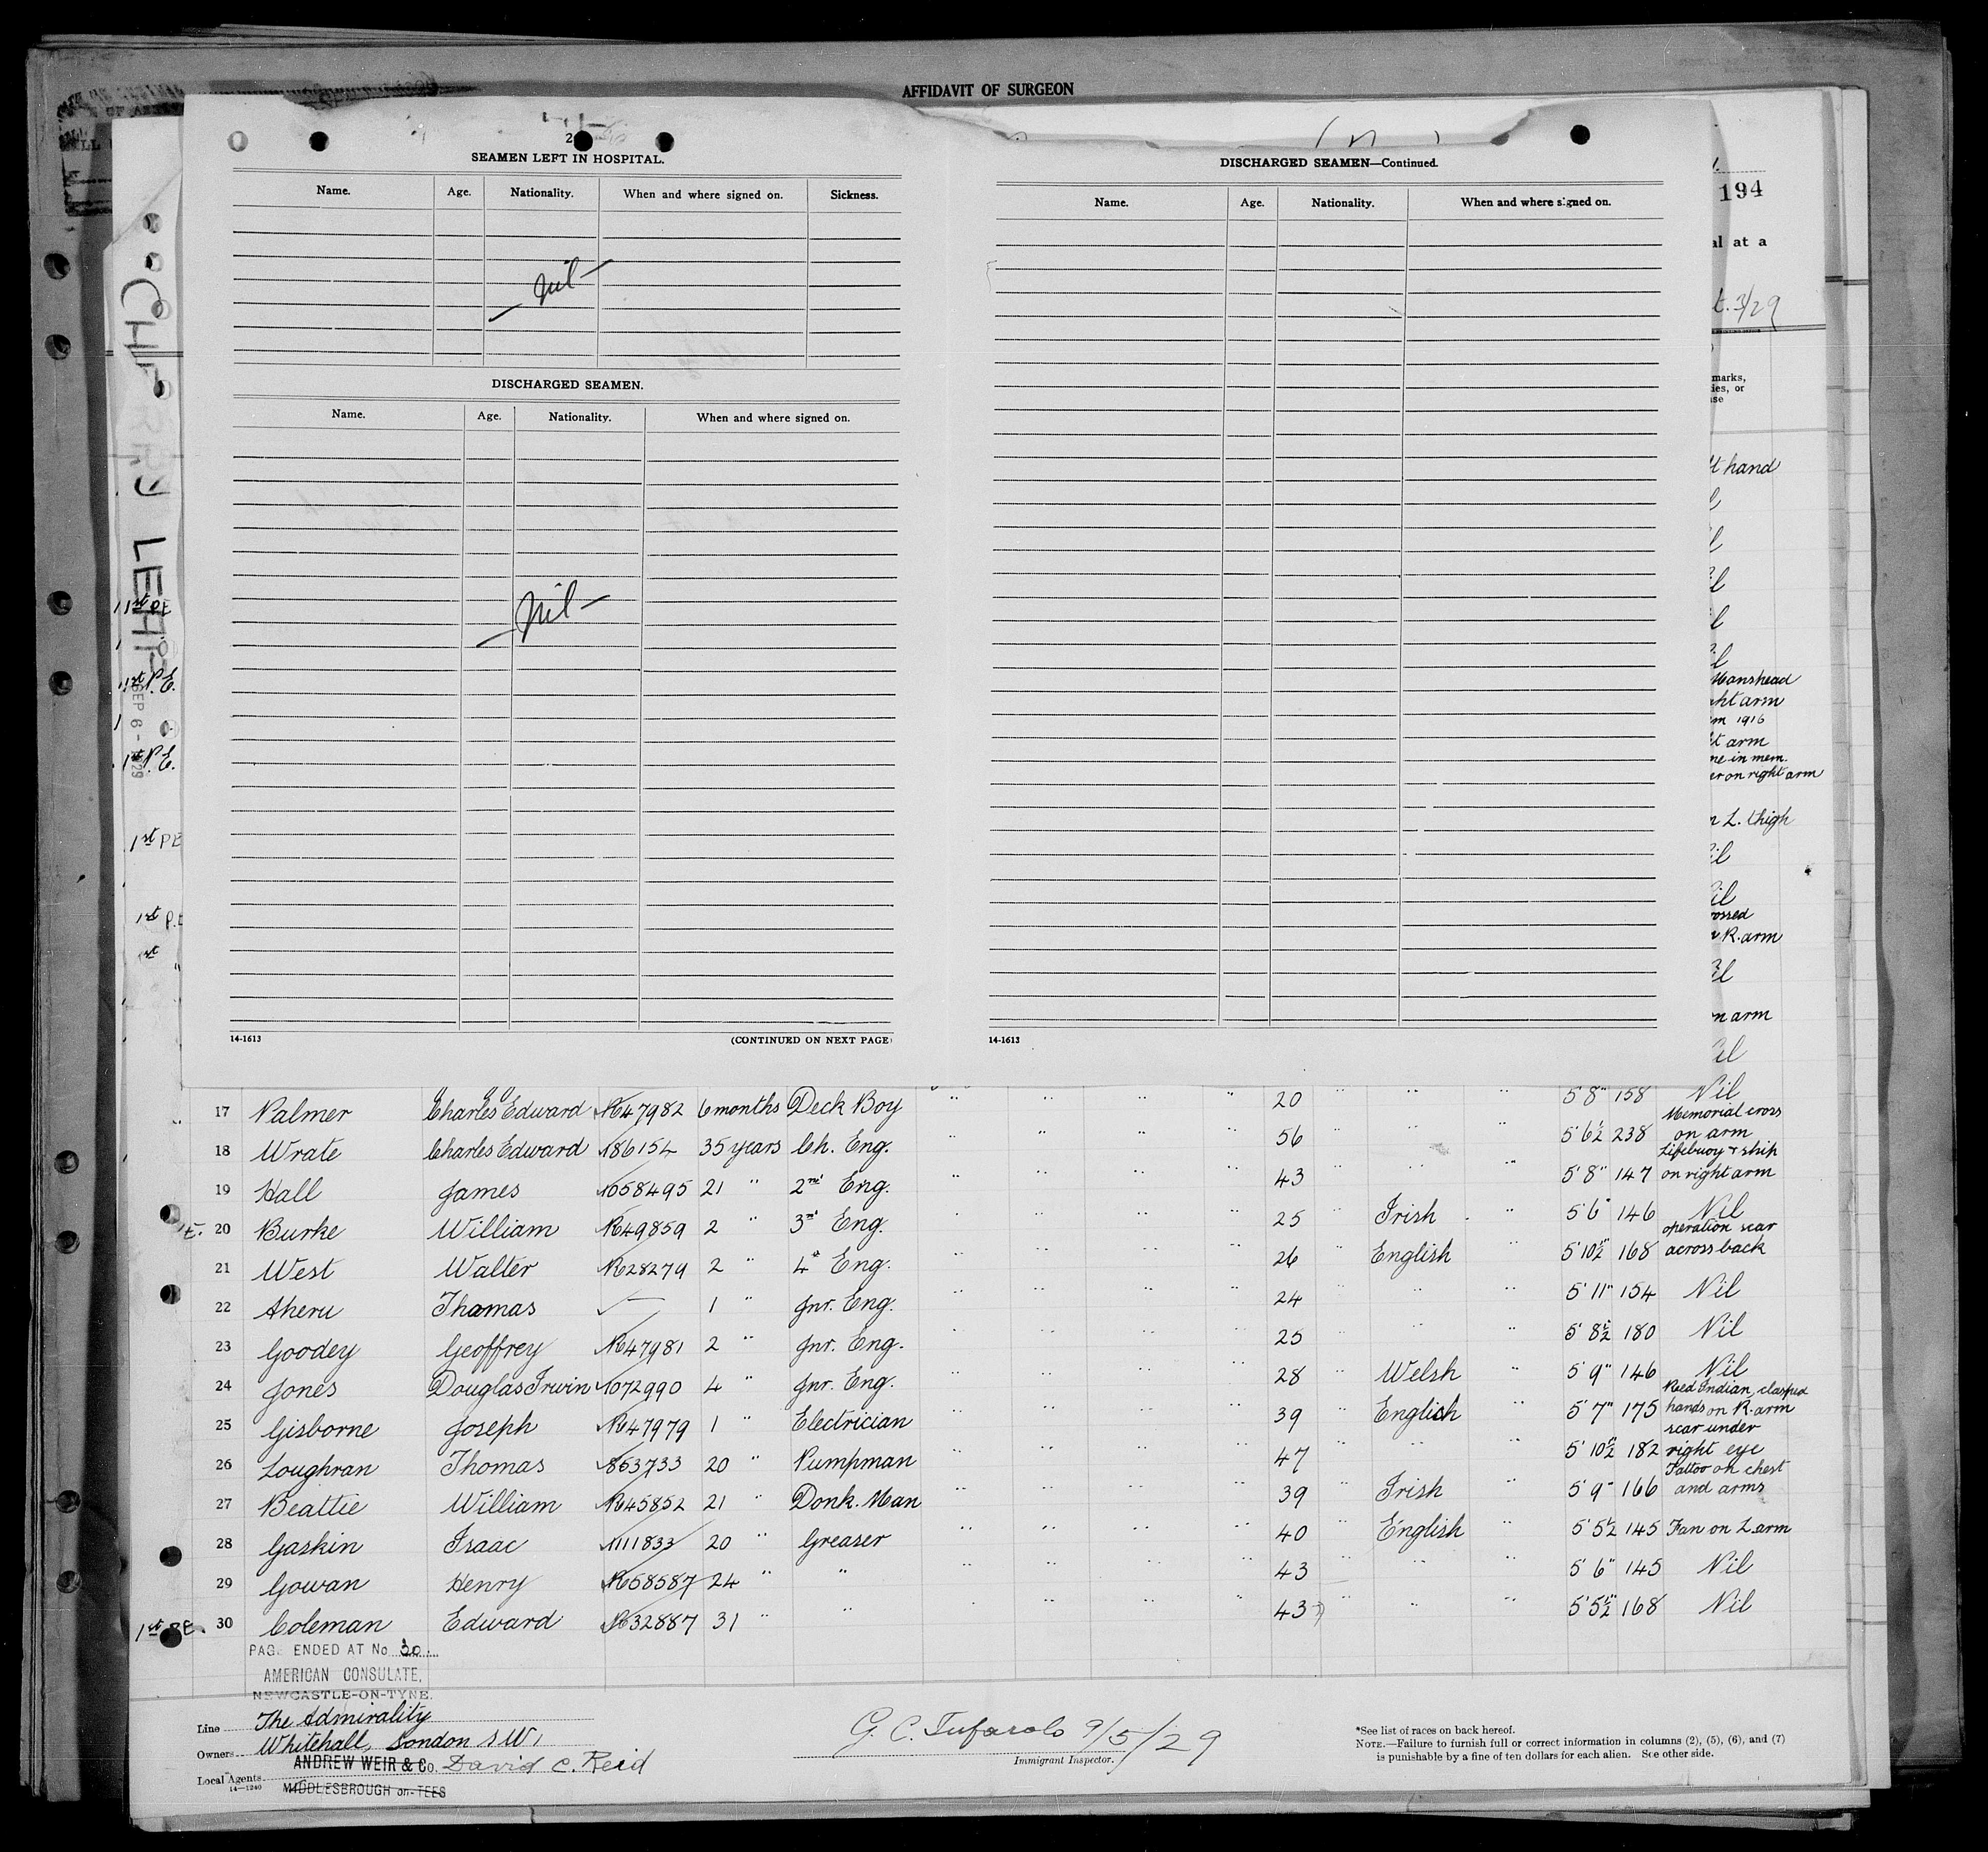 AFFIDAVIT OF SURGEON
2
SEAMEN LEFT IN HOSPITAL.
Name. Age. Nationality. When and where signed on. Sickness.
— Nil —
DISCHARGED SEAMEN.
Name. Age. Nationality. When and where signed on.
— Nil —
14-1613 (CONTINUED ON NEXT PAGE)
DISCHARGED SEAMEN—Continued.
Name. Age. Nationality. When and where signed on.
14-1613
194
al at a
t. 3/29
marks,
ies, or
t hand
Manshead
ht arm
m 1916
t arm
ne in mem.
er on right arm
L. thigh
il
il
ossed
R. arm
il
n arm
il
LEAF
SEP 6 - 1929
1st PE
1st P.E.
1st P.E.
1st PE
1st P.E
1st "
17 Palmer Charles Edward R647982 6 months Deck Boy " " " " 20 " " 5'8" 158 Nil
18 Wrate Charles Edward 186154 35 years Ch. Eng. " " " " 56 " " 5'6½ 238 Memorial cross on arm
19 Hall James 1058495 21 " 2nd Eng. " " " " 43 " " " 5'8" 147 Lifebuoy & ship on right arm
E. 20 Burke William R649859 2 " 3rd Eng. " " " " 25 " Irish " 5'6" 146 Nil
21 West Walter R628279 2 " 4th Eng. " " " " 26 " English 5'10½" 168 operation scar across back
22 Aheru Thomas 1 " Jnr. Eng. " " " " 24 " " " 5'11" 154 Nil
23 Goodey Geoffrey R647981 2 " Jnr. Eng. " " " " 25 " " " 5'8½ 180 Nil
24 Jones Douglas Irwin 1072990 4 " Jnr. Eng. " " " " 28 " Welsh " 5'9" 146 Nil
25 Gisborne Joseph R647979 1 " Electrician " " " " 39 " English " 5'7" 175 Red Indian, clasped hands on R. arm
26 Loughran Thomas 863733 20 " Pumpman " " " " 47 " " " 5'10½" 182 scar under right eye
27 Beattie William R645852 21 " Donk. Man " " " " 39 " Irish " 5'9" 166 Tattoo on chest and arms
28 Gaskin Isaac 1111833 20 " Greaser " " " " 40 " English " 5'5½ 145 Fan on L. arm
29 Gowan Henry R658587 24 " " " " " " 43 " " " 5'6" 145 Nil
1st PE. 30 Coleman Edward R632887 31 " " " " " " 43 " " " 5'5½" 168 Nil
PAGE ENDED AT No. 30
AMERICAN CONSULATE,
NEWCASTLE-ON-TYNE.
Line The Admirality
Owners Whitehall, London S.W.1
Local Agents ANDREW WEIR & Co. David C. Reid
14—1240 MIDDLESBROUGH on-TEES
G. C. Tufarolo 9/5/29
Immigrant Inspector.
*See list of races on back hereof.
NOTE.—Failure to furnish full or correct information in columns (2), (5), (6), and (7)
is punishable by a fine of ten dollars for each alien. See other side.